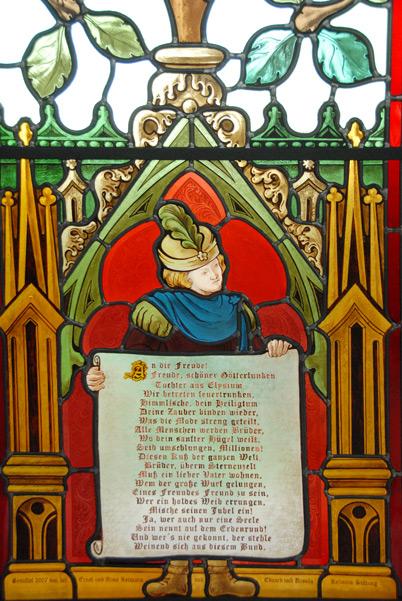 An die Freude!
Freude, schöner Götterfunken
Tochter aus Elysium
Wir betreten feuertrunken,
Himmlische, dein Heiligtum
Deine Zauber binden wieder,
Was die Mode streng geteilt,
Alle Menschen werden Brüder,
Wo dein sanfter Flügel weilt.
Seid umschlungen, Millionen!
Diesen Kuß der ganzen Welt,
Brüder, überm Sternenzelt
Muß ein lieber Vater wohnen.
Wem der große Wurf gelungen,
Eines Freundes Freund zu sein,
Wer ein holdes Weib errungen,
Mische seinen Jubel ein!
Ja, wer auch nur eine Seele
Sein nennt auf dem Erdenrund!
Und wer's nie gekonnt, der stehle
Weinend sich aus diesem Bund.
Ernst und
Eduard und